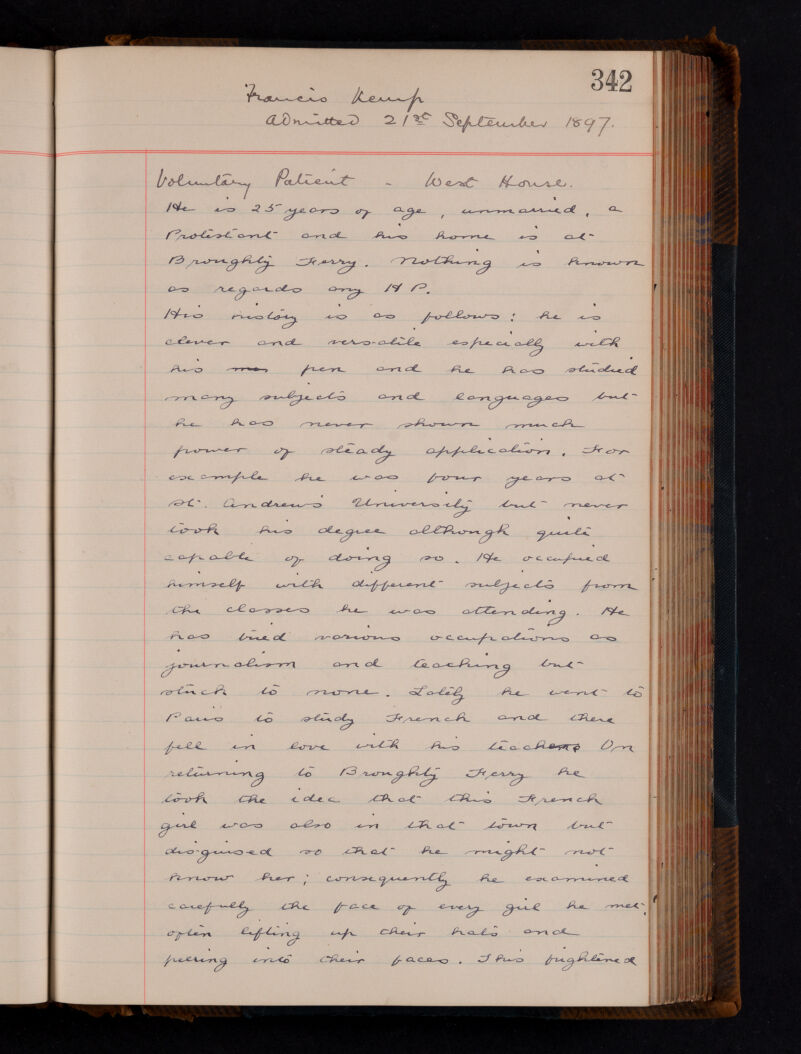 342
Francis Kemp
Admitted 21st September 1897.
Voluntary Patient - West House.
He is 25 years of age, unmarried, a
Protestant and his home is at
Broughty Ferry. Nothing is known
as regards any H P.
His history is as follows: he is
clever and versatile especially with
his pen and he has studied
many subjects and languages but
he has never shown much
power of steady application. For
example he was four years at
St. Andrews University but never
took his degree although quite
capable of doing so. He occupied
himself with different subjects from
the classes he was attending. He
has tried various occupations as
journalism and teaching but
stuck to none. Lately he went to
Paris to study French and there
fell in love with his teacher On
returning to Broughty Ferry he
took the idea that this French
girl was also in that town but
disguised so that he might not
know her; consequently he examined
carefully the face of every girl he met,
often lifting up their hats and
peering into their faces. This frightened